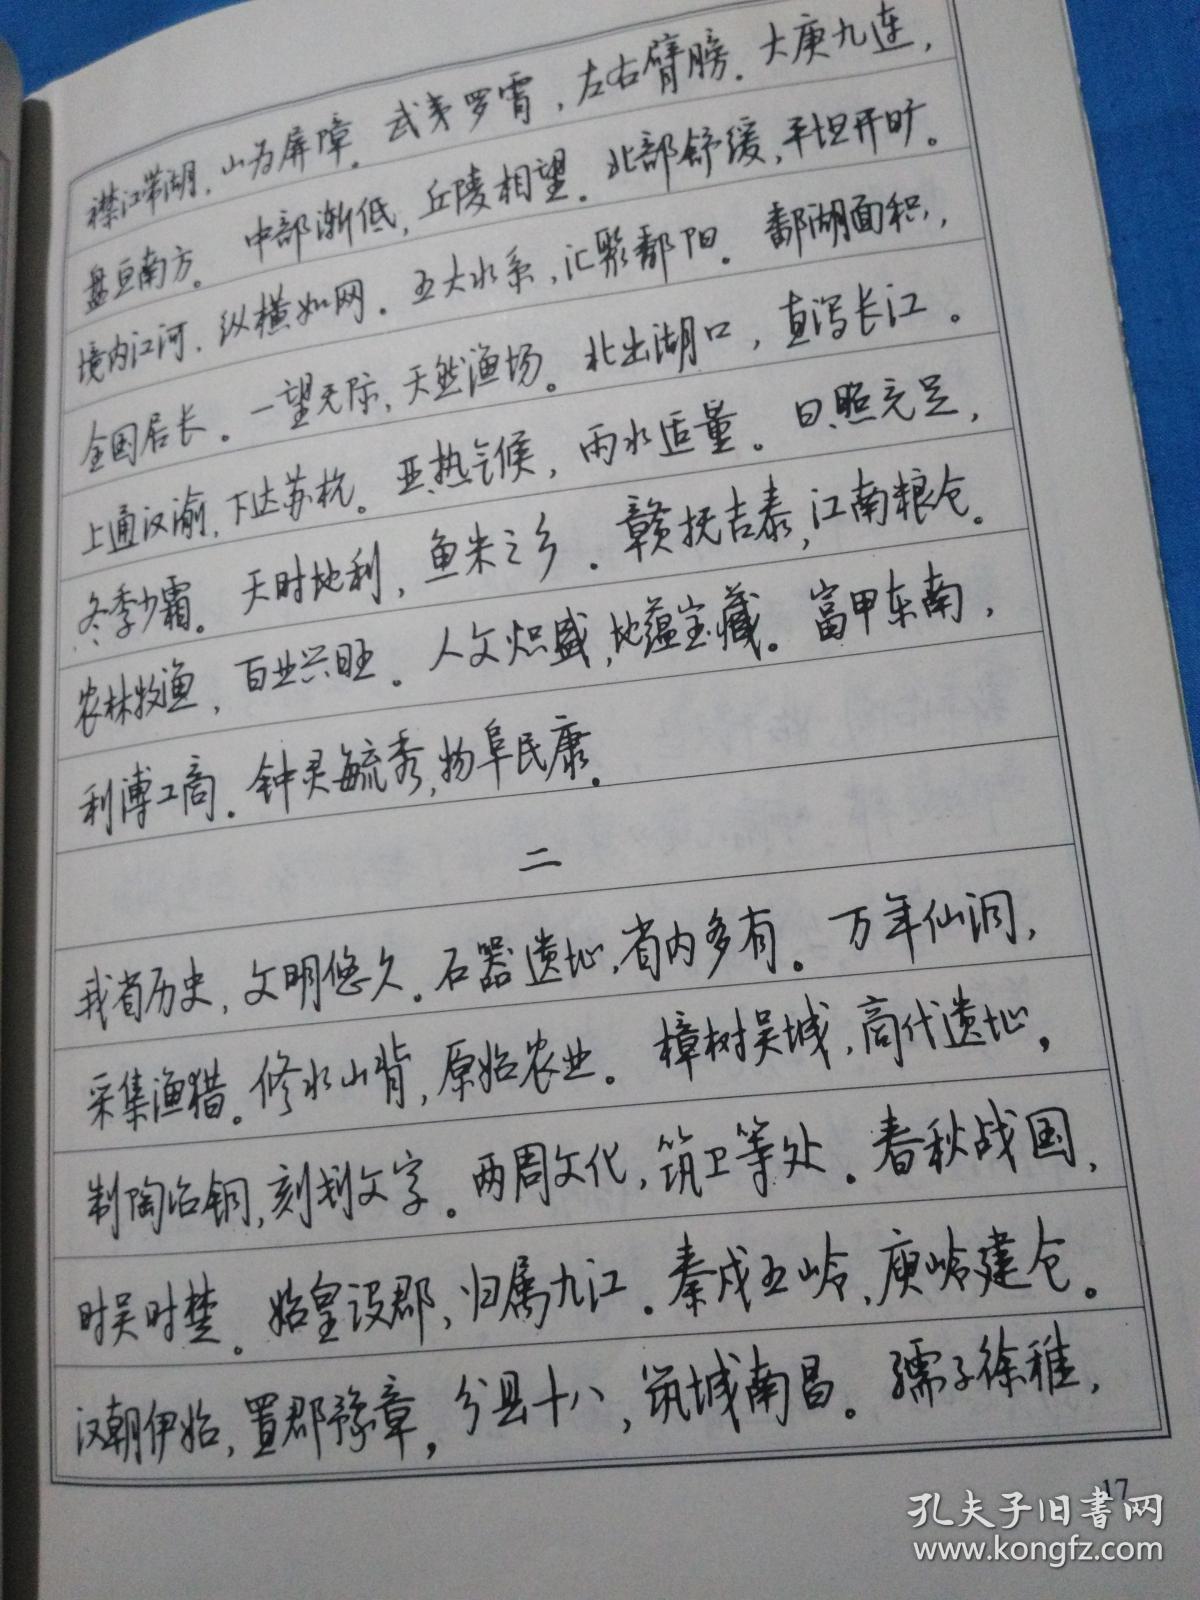 襟江带湖，山为屏障。武夷罗霄，左右臂膀。大庾九连，
盘亘南方。中部渐低，丘陵相望。北部舒缓，平坦开旷。
境内江河，纵横如网。五大水系，汇聚鄱阳。鄱湖面积，
全国居长。一望无际，天然渔场。北出湖口，直泻长江。
上通汉渝，下达苏杭。亚热气候，雨水适量。日照充足，
冬季少霜。天时地利，鱼米之乡。赣抚吉泰，江南粮仓。
农林牧渔，百业兴旺。人文炽盛，地蕴宝藏。富甲东南，
利溥工商。钟灵毓秀，物阜民康。
二
我省历史，文明悠久。石器遗址，省内多有。万年仙洞，
采集渔猎。修水山背，原始农业。樟树吴城，商代遗址，
制陶冶铜，刻划文字。两周文化，筑卫等处。春秋战国，
时吴时楚。始皇设郡，归属九江。秦戍五岭，庾岭建仓。
汉朝伊始，置郡豫章，分县十八，筑城南昌。孺子徐稚，
17
孔夫子旧书网
www.kongfz.com